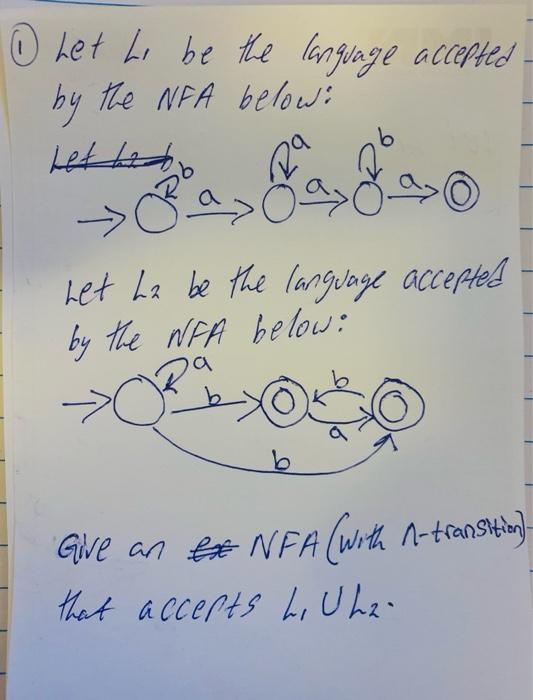 ① Let L₁ be the language accepted
by the NFA below:
b a a a b a
Let L₂ be the language accepted
by the NFA below:
a b b a
b
Give an NFA (with Λ-transition)
that accepts L₁ ∪ L₂.